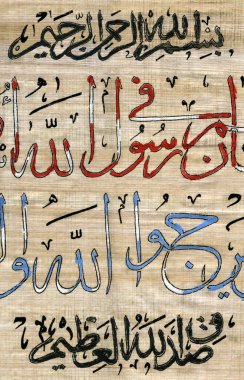 بسم الله الرحمن الرحيم
في رسول الله
يرجوا الله
صدق الله العظيم